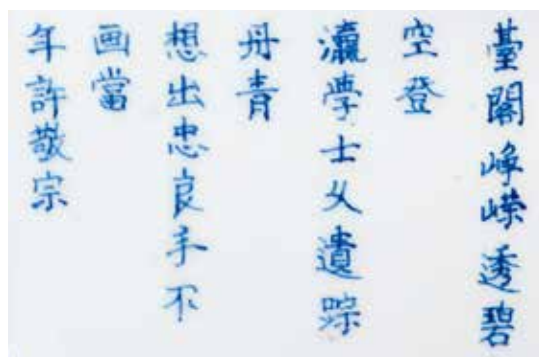 臺閣崢嶸透碧
空登
瀛學士乆遺踪
丹青
想出忠良手不
画當
年許敬宗